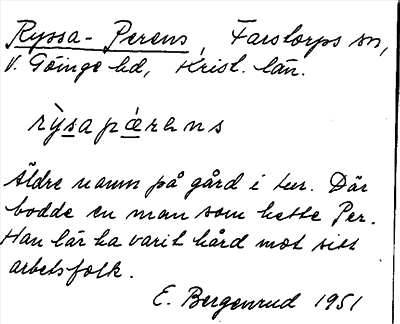 Ryssa-Perens, Farstorps sn,
V. Göinge hd, Krist. län.
rỳsapærəns
Äldre namn på gård i tur. Där
bodde en man som hette Per.
Han lär ha varit hård mot sitt
arbetsfolk.
E. Bergenrud 1951